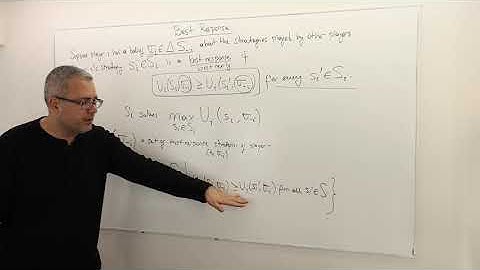 Best Response
Suppose player i has a belief σ₋ᵢ ∈ ΔS₋ᵢ about the strategies played by other players
i's strategy sᵢ ∈ Sᵢ is a best response if
Uᵢ(sᵢ, σ₋ᵢ) ≥ Uᵢ(sᵢ', σ₋ᵢ) for every sᵢ' ∈ Sᵢ.
sᵢ solves max Uᵢ(sᵢ, σ₋ᵢ)
sᵢ ∈ Sᵢ
= set of best response strategies of player
≥ Uᵢ(sᵢ', σ₋ᵢ) for all sᵢ' ∈ Sᵢ}